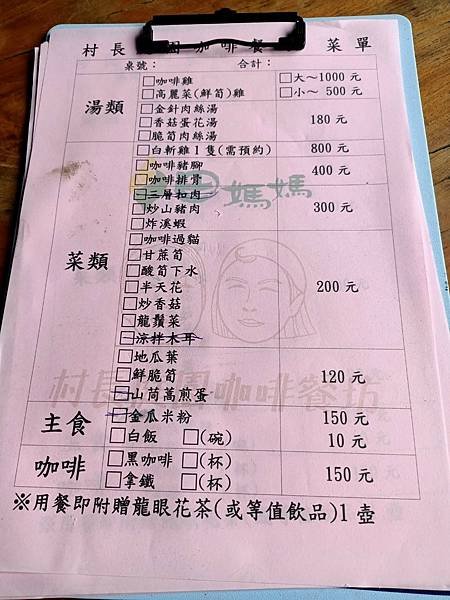 村長 園咖啡餐 菜單
桌號： 合計：
湯類
□咖啡雞 □大～1000元
□高麗菜(鮮筍)雞 □小～ 500元
□金針肉絲湯
□香菇蛋花湯 180元
□脆筍肉絲湯
□白斬雞1隻(需預約) 800元
菜類
□咖啡豬腳 400元
□咖啡排骨
□三層扣肉
□炒山豬肉 300元
□炸溪蝦
□咖啡過貓
□甘蔗筍
□酸筍下水
□半天花 200元
□炒香菇
□龍鬚菜
□涼拌木耳
□地瓜葉
□鮮脆筍 120元
□山茼蒿煎蛋
主食
□金瓜米粉 150元
□白飯 □(碗) 10元
咖啡
□黑咖啡 □(杯) 150元
□拿鐵 □(杯)
※用餐即附贈龍眼花茶(或等值飲品)1壺
媽媽
村長 園咖啡餐坊